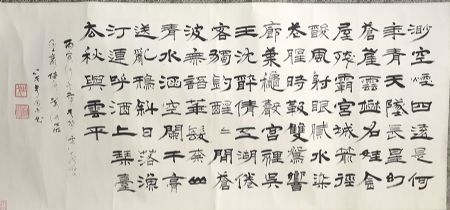 渺空煙四遠是何
年青天墜長星幻
蒼崖雲樹名娃金
屋殘霸宮城箭徑
酸風射眼膩水染
花腥時靸雙鴛響
廊葉秋聲宮裡吳
王沈醉倩五湖倦
客獨釣醒〻問蒼
波無語華髮奈山
青水涵空闌干高
送亂鴉斜日落漁
汀連呼酒上琴臺
去秋與雲平
丙寅